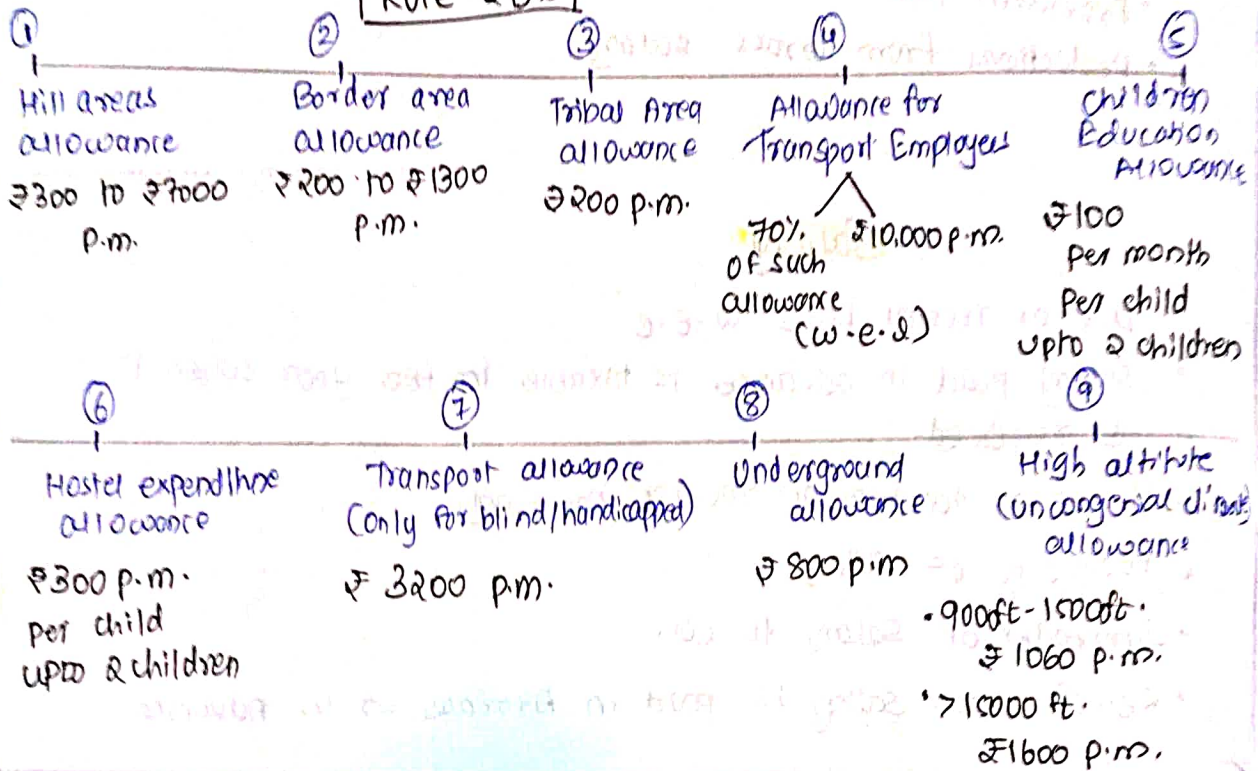 ①
Hill areas
allowance
₹300 to ₹7000
p.m.
②
Border area
allowance
₹200 to ₹1300
p.m.
③
Tribal Area
allowance
₹200 p.m.
④
Allowance for
Transport Employees
70%
of such
allowance
₹10,000 p.m.
(w.e.l)
⑤
Children
Education
Allowance
₹100
Per month
Per child
upto 2 children
⑥
Hostel expenditure
allowance
₹300 p.m.
per child
upto 2 children
⑦
Transport allowance
(only for blind/handicapped)
₹ 3200 p.m.
⑧
Underground
allowance
₹800 p.m
⑨
High altitute
(uncongenial climate)
allowance
• 900ft-1500ft.
₹ 1060 p.m.
• >15000 ft.
₹1600 p.m.